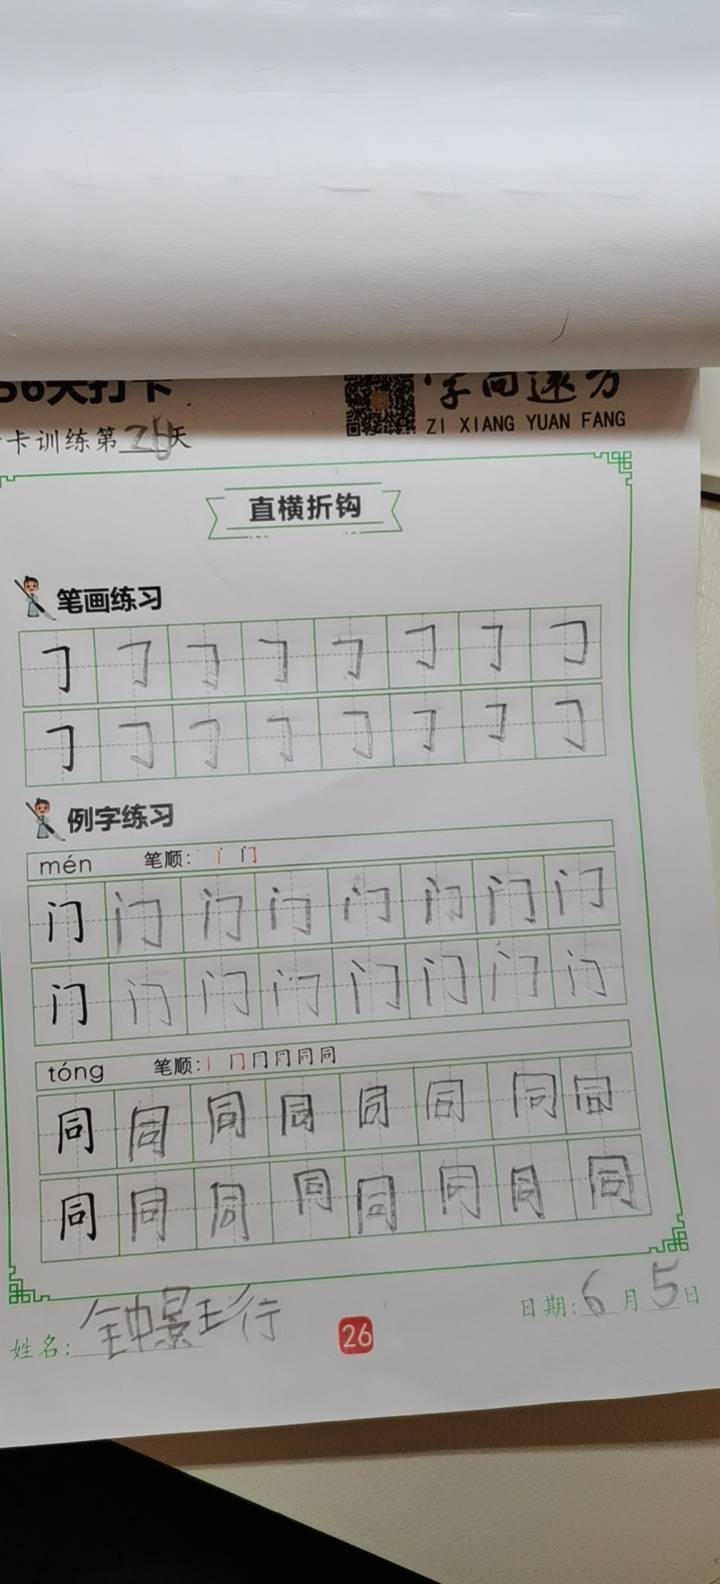 56天打卡
字向速方
ZI XIANG YUAN FANG
卡训练第26天
直横折钩
笔画练习
𠃌 𠃌 𠃌 𠃌 𠃌 𠃌 𠃌 𠃌
𠃌 𠃌 𠃌 𠃌 𠃌 𠃌 𠃌 𠃌
例字练习
mén 笔顺:
门 门 门 门 门 门 门 门
门 门 门 门 门 门 门 门
tóng 笔顺:
同 同 同 同 同 同 同 同
同 同 同 同 同 同 同 同
姓名:钟景珩
26
日期:6月5日